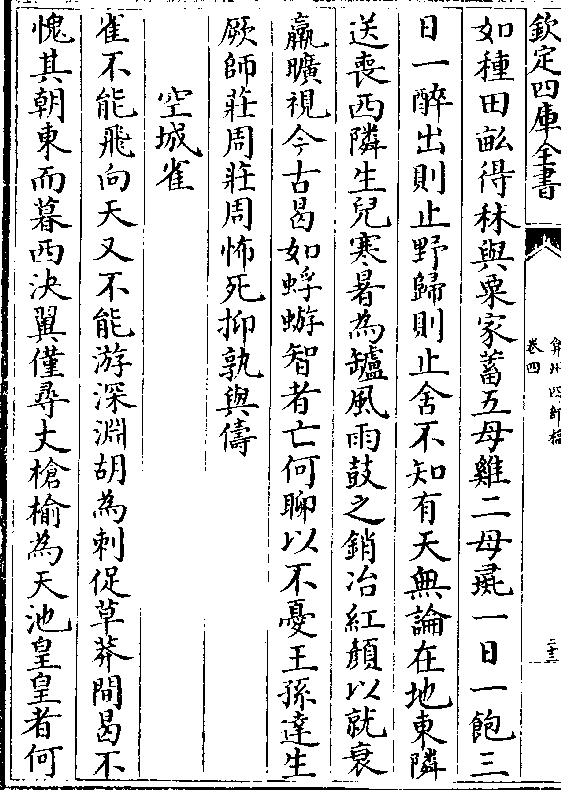 欽定四庫全書
弇州四部稿
卷四
二十三
如種田畝得秫與粟家蓄五母雞二母彘一日一飽三
日一醉出則止野歸則止舍不知有天無論在地東隣
送喪西隣生兒寒暑為罏風雨鼓之銷冶紅顏以就衰
羸曠視今古曷如蜉蝣智者亡何聊以不憂王孫達生
厥師莊周莊周怖死抑孰與儔
空城雀
雀不能飛向天又不能游深淵胡為刺促草莽間曷不
愧其朝東而暮西決翼僅尋丈槍榆為天池皇皇者何